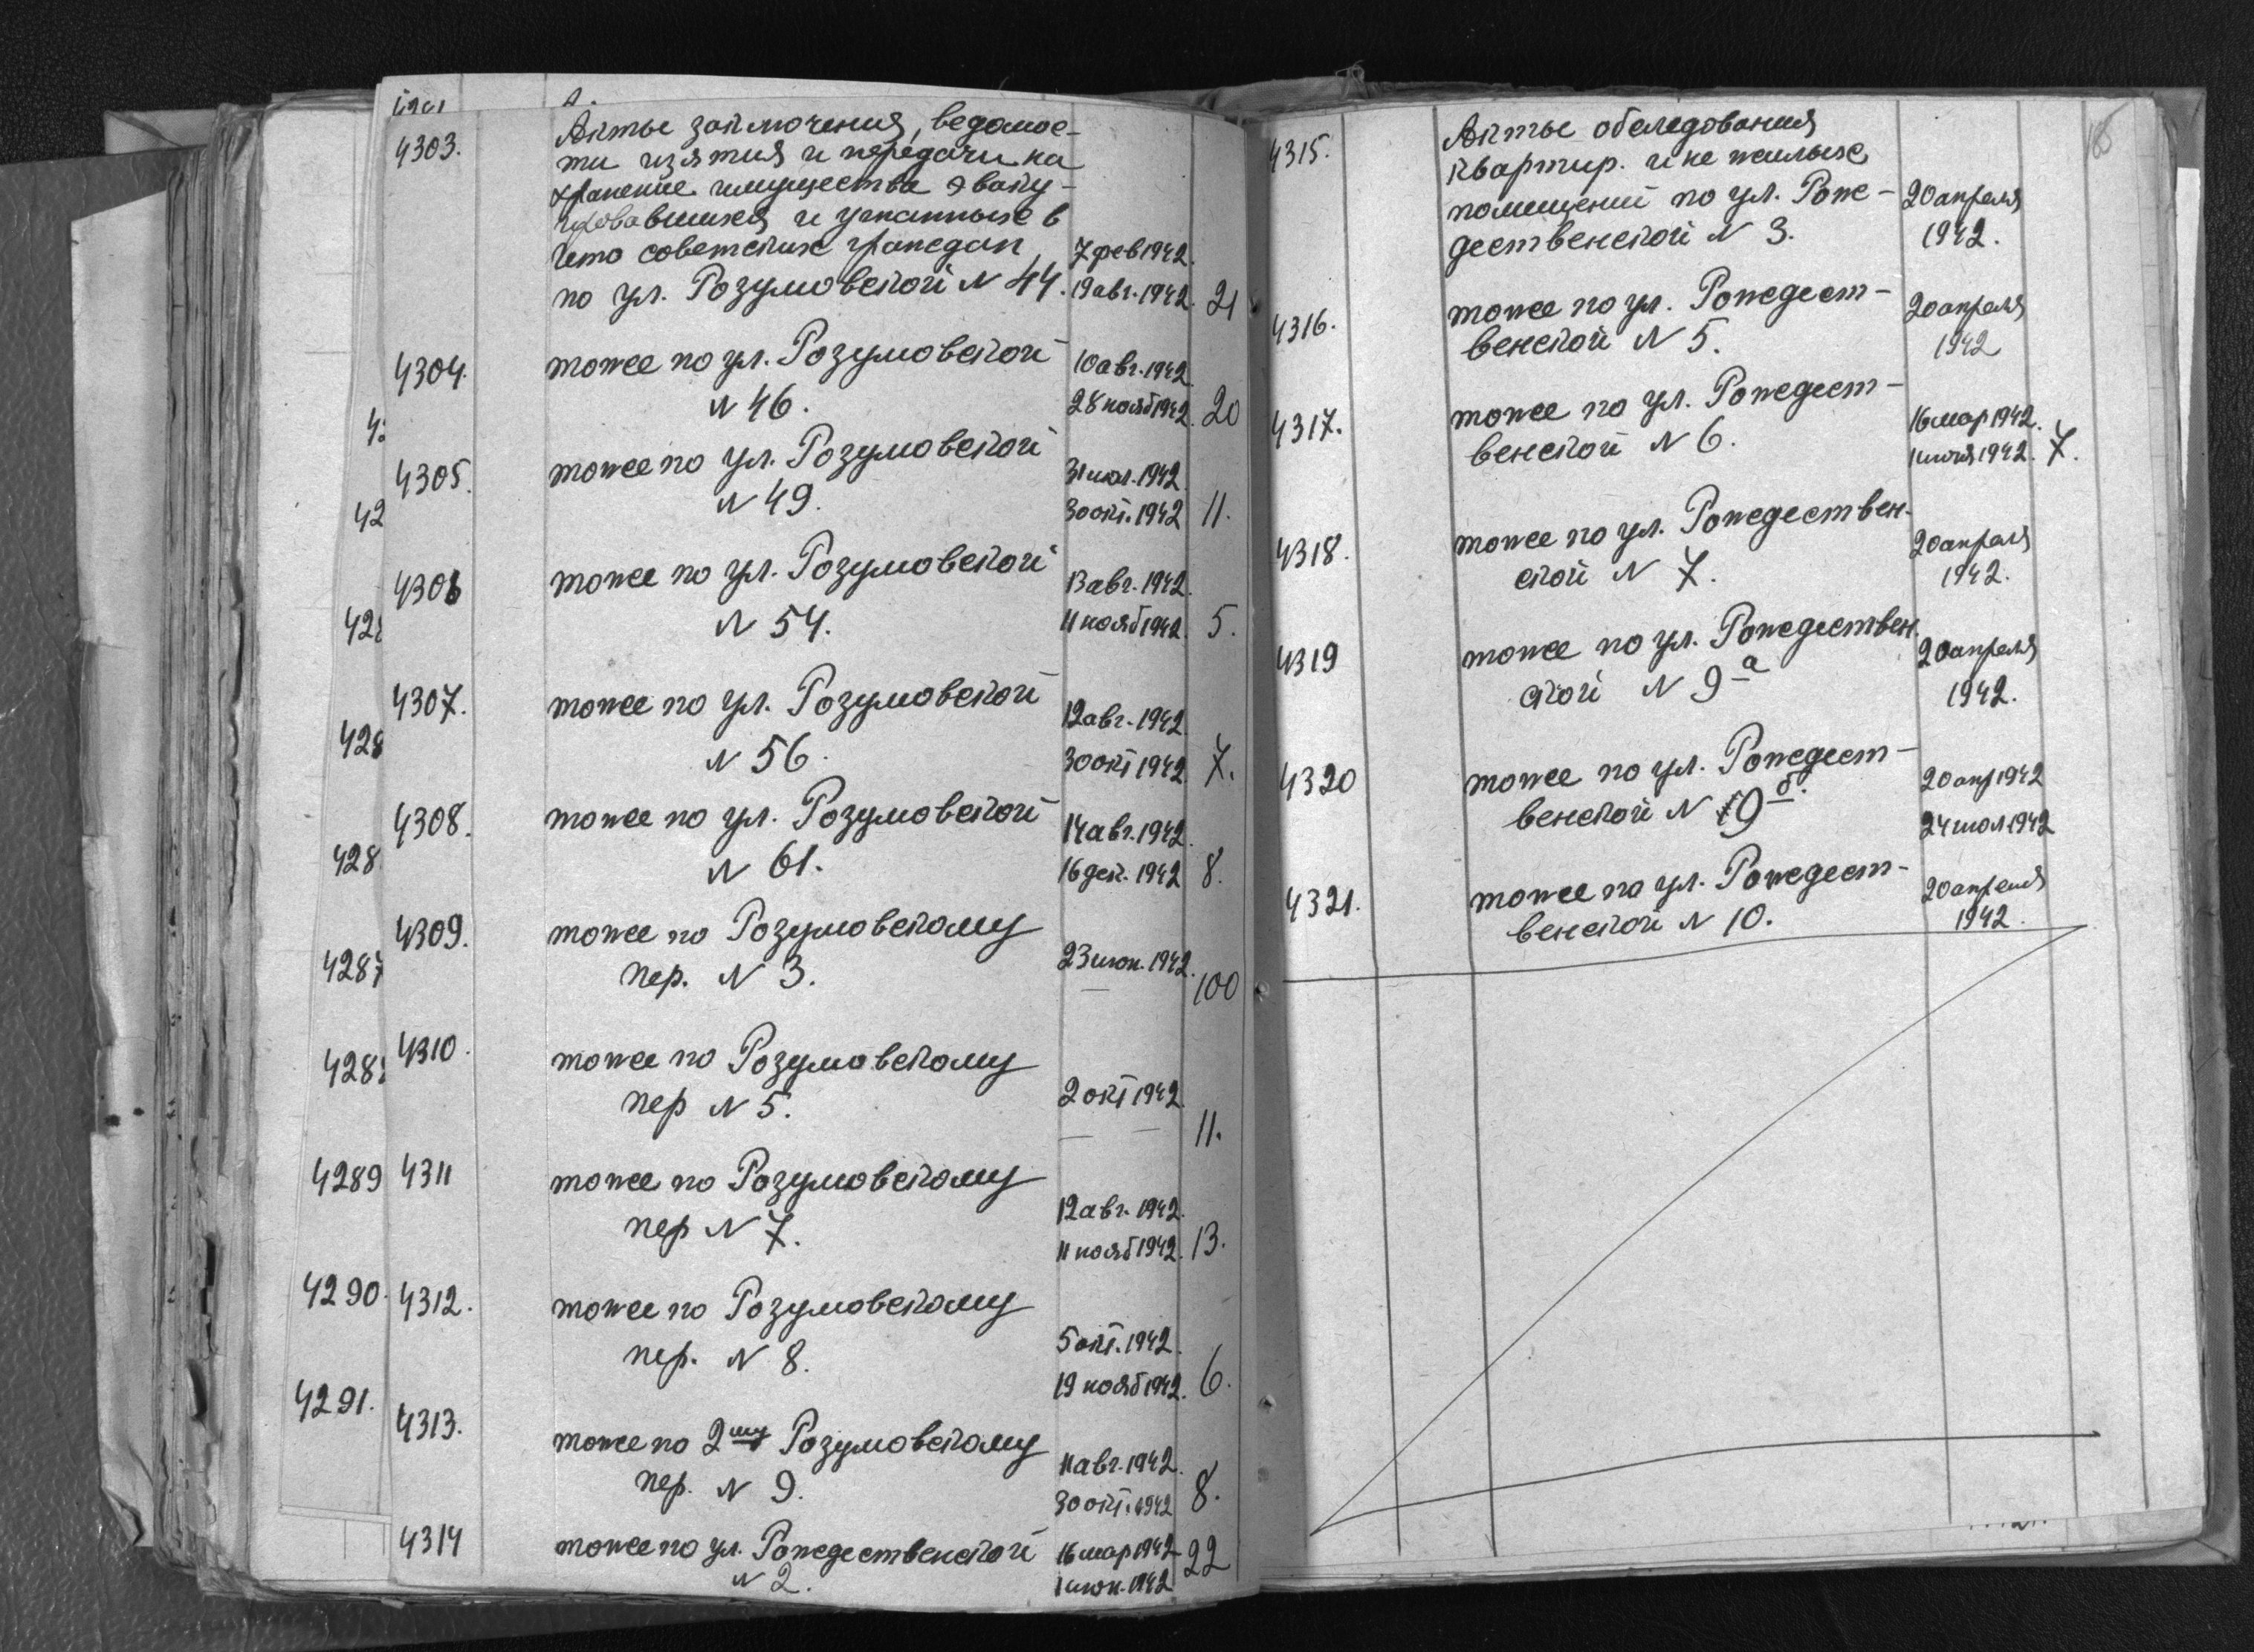 4303. Акты заключения, ведомос-
ти изъятия и передачи на
хранение имущества эваку-
ировавшихся и угнанных в
гето советских граждан 7 фев 1942.
по ул. Розумовской N 44. 19 авг. 1942. 21
4304. тоже по ул. Розумовской 10 авг. 1942
N 46. 28 нояб 1942. 20
4305. тоже по ул. Розумовской 31 июл. 1942
N 49. 30 окт. 1942 11.
4306 тоже по ул. Розумовской 13 авг. 1942.
N 54. 11 нояб 1942. 5.
4307. тоже по ул. Розумовской 12 авг. 1942
N 56. 30 окт 1942 7.
4308. тоже по ул. Розумовской 14 авг. 1942.
N 61. 16 дек. 1942 8.
4309. тоже по Розумовскому 23 июн. 1942.
пер. N 3. 100
4310. тоже по Розумовскому 2 окт 1942
пер N 5. 11.
4289 4311 тоже по Розумовскому 12 авг. 1942.
пер N 7. 11 нояб 1942. 13.
4290. 4312. тоже по Розумовскому 5 окт. 1942.
пер. N 8. 19 нояб 1942. 6.
4291.
4313. тоже по 2му Розумовскому 11 авг. 1942.
пер. N 9. 30 окт. 1942 8.
4314 тоже по ул. Рождественской 16 мар 1942 22
N 2. 1 июн. 1942
4315. Акты обследования
квартир. и не жилых
помещений по ул. Рож- 20 апреля
дественской N 3. 1942.
4316. тоже по ул. Рождест- 20 апреля
венской N 5. 1942
4317. тоже по ул. Рождест- 16 мар 1942.
венской N 6. 1 июня 1942. 7.
4318. тоже по ул. Рождествен- 20 апреля
ской N 7. 1942.
4319 тоже по ул. Рождествен- 20 апреля
ской N 9а 1942.
4320 тоже по ул. Рождест- 20 апр 1942
венской N 9б. 24 июл 1942
4321. тоже по ул. Рождест- 20 апреля
венской N 10. 1942.